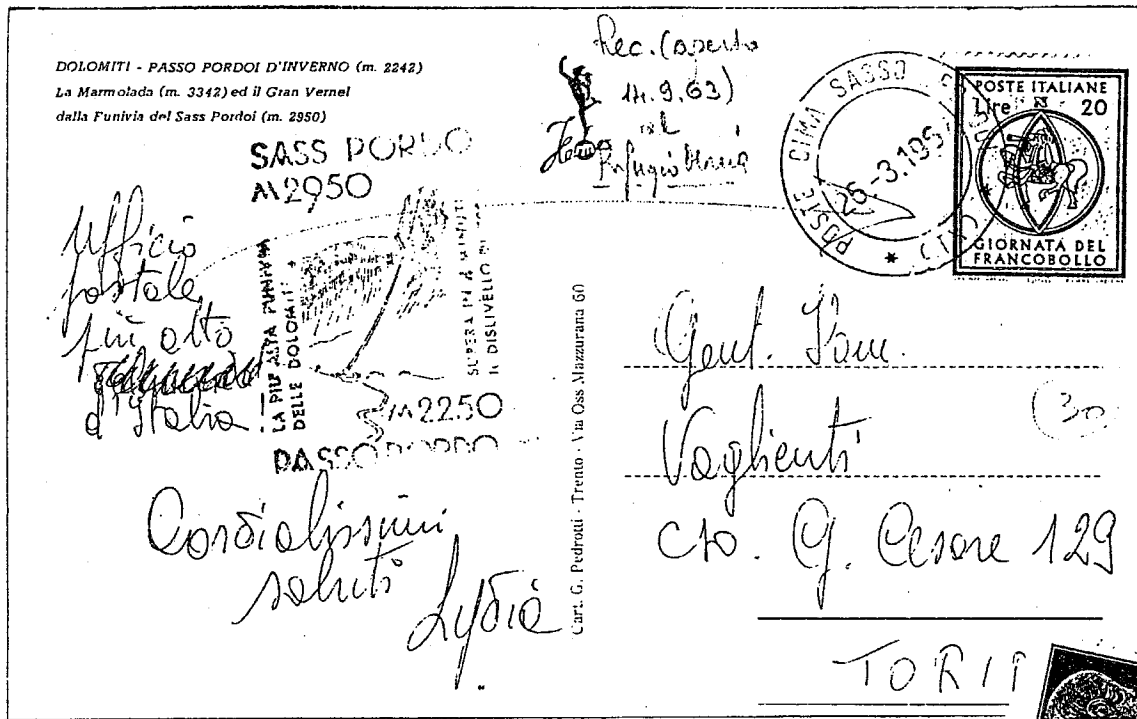 DOLOMITI - PASSO PORDOI D'INVERNO (m. 2242)
La Marmolada (m. 3342) ed il Gran Vernel
dalla Funivia del Sass Pordoi (m. 2950)
Rec. (aperto
14.9.63)
al
Rifugio Maria
SASS PORDO
M2950
LA PIU' ALTA FUNIVIA
DELLE DOLOMITI
SUPERA IN 4 MINUTI
IL DISLIVELLO DI
M2250
PASSO PORDO
ufficio
postale
più alto
d'Italia
Cordialissimi
saluti
Lydia
Cart. G. Pedrotti - Trento - Via Oss Mazzurana 60
POSTE CIMA SASSO
25-3.196
POSTE ITALIANE
Lire 20
GIORNATA DEL
FRANCOBOLLO
Gent. Fam.
Vaglienti
30
c/so. G. Cesare 129
TORI